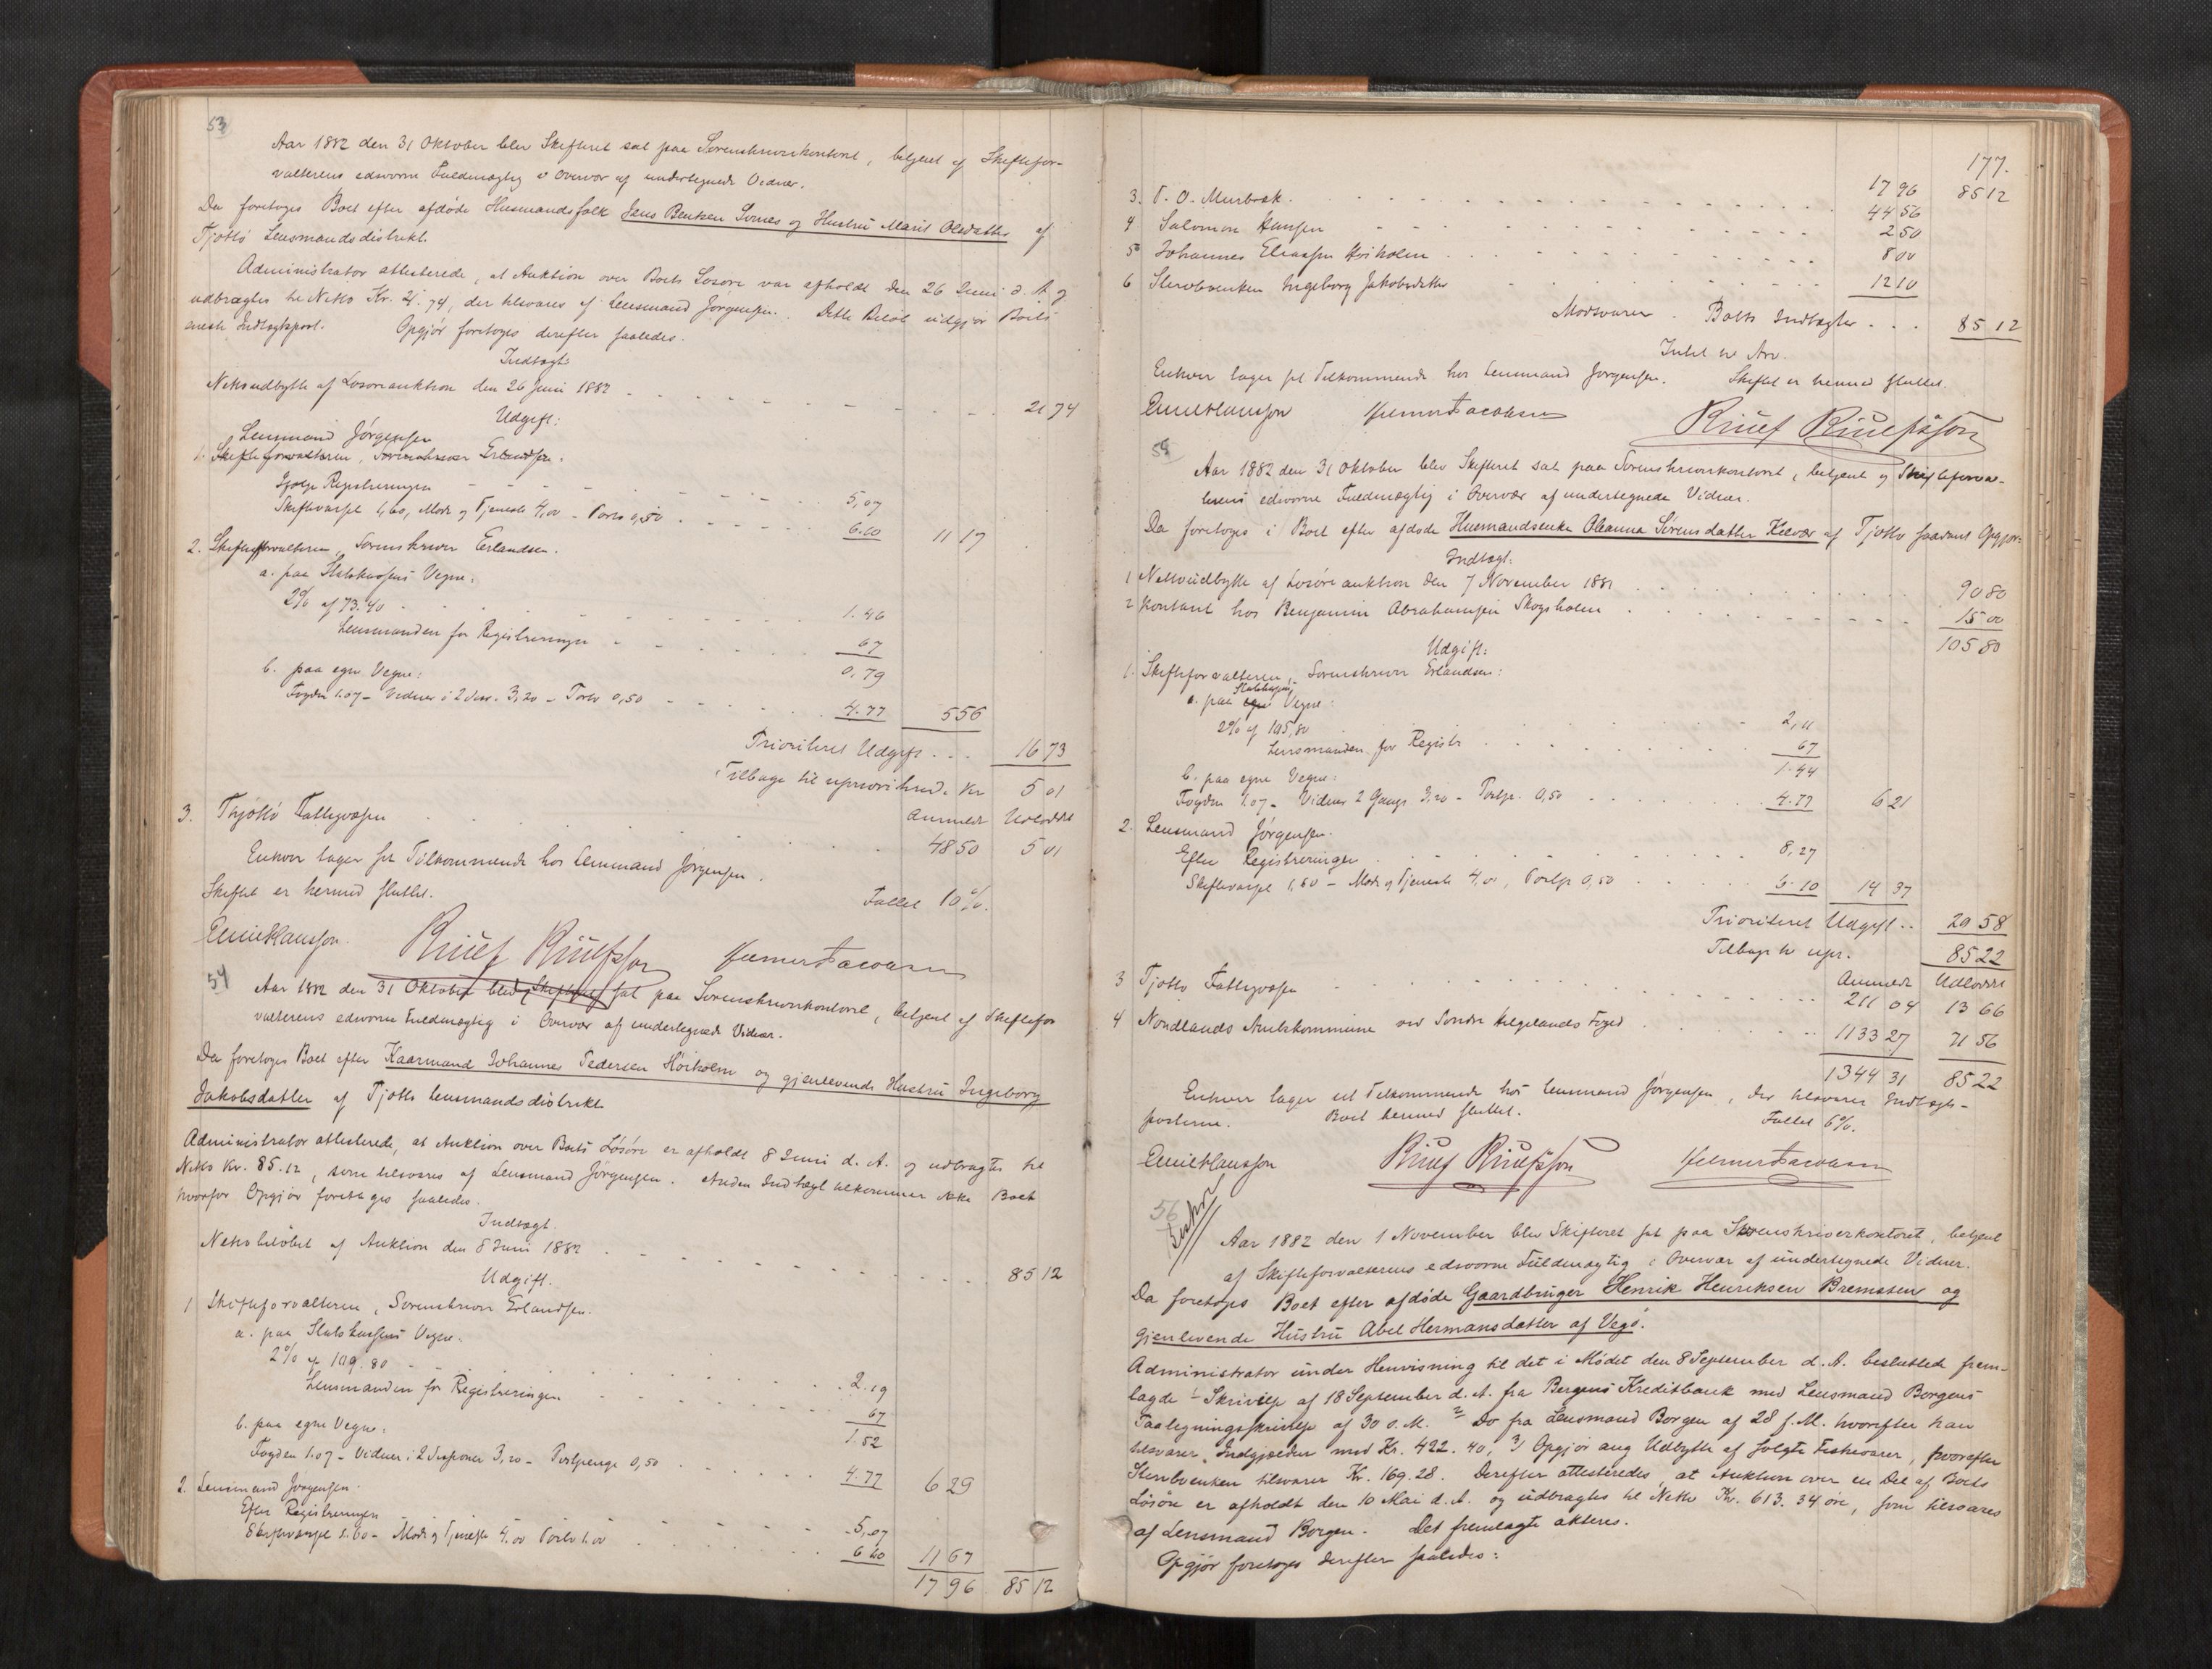 53
Aar 1882 den 31 Oktober blev Skifteret sat paa Sorenskriverkontoret, betjent af Skiftefor-
valterens edsvorne Fuldmægtig i Overvær af undertegnede Vidner.
Da foretoges Boet efter afdøde Husmandsfolk Jens Bentsen Sornes og Hustru Marit Olsdatter af
Tjøttø Lensmandsdistrikt.
Administrator attesterede, at Auktion over Boets Løsøre var afholdt den 26 Juni d. A. og
udbragtes til Netto Kr. 21.74, der tilsvares af Lensmand Jørgensen. Dette Beløb udgjør Boets
eneste Indtægtspost. Opgjør foretoges derefter saaledes.
Indtægt:
Nettoudbytte af Løsøreauktion den 26 Juni 1882 21 74
Udgift:
Lensmand Jørgensen
1. Skifteforvalteren, Sorenskriver Erlandsen.
Ifølge Registreringen 5,07
Skiftevarsel 1,60, Møde og Tjeneste 4,00 - Porto 0,50 6.10 11 17
2. Skifteforvalteren, Sorenskriver Erlandsen.
a. paa Statskassens Vegne:
2% af 73.40 1.46
Lensmanden for Registreringen 67
0,79
b. paa egne Vegne:
Fogden 1.07 - Vidner i 2 Sess. 3,20 - Porto 0,50 4.77 5 56
Prioriteret Udgift 16 73
Tilbage til uprioriterede Kr 5 01
Anmeldt Udloddet
3. Thjøttø Fattigvæsen 48 50 5 01
Enhver tager sit Tilkommende hos Lensmand Jørgensen.
Skiftet er hermed sluttet. Faldet 10%.
Emil Hansson Rieef Rieefsson Helmer Jacobsen
54
Aar 1882 den 31 Oktober blev Skifteret sat paa Sorenskriverkontoret, betjent af Skiftefor
valterens edsvorne Fuldmægtig i Overvær af undertegnede Vidner.
Da foretoges Boet efter Kaarmand Johannes Pedersen Høiholm og gjenlevende Hustru Ingeborg
Jakobsdatter af Tjøttø Lensmandsdistrikt
Administrator attesterede, at Auktion over Boets Løsøre er afholdt 8 Juni d. A. og udbragtes til
Netto Kr. 85.12, som tilsvares af Lensmand Jørgensen. Anden Indtægt tilkommer ikke Boet
hvorfor Opgjør foretoges saaledes.
Indtægt.
Nettobeløbet af Auktion den 8 Juni 1882 85 12
Udgift.
1 Skifteforvalteren, Sorenskriver Erlandsen.
a. paa Statskassens Vegne.
2% af 109.80 2.19
Lensmanden for Registreringen 67
1.52
b. paa egne Vegne:
Fogden 1.07 - Vidner i 2 Sessioner 3,20 - Postpenge 0,50 4.77 6 29
2. Lensmand Jørgensen.
Efter Registreringen 5,07
Skiftevarsel 1.60 - Møde og Tjeneste 4.00 Porto 1.00 6 60 11 67
17 96 85 12
177.
17 96 85 12
3. P. O. Murbæk. 44 56
4 Salomon Hansen 2 50
5 Johannes Eliassen Høiholm 8 00
6 Stervboenken Ingeborg Jakobsdatter 12 10
Modsvarer Boets Indtægter 85 12
Intet til Arv.
Enhver tager sit Tilkommende hos Lensmand Jørgensen. Skiftet er hermed sluttet.
Emil Hansson Helmer Jacobsen Rieef Rieefsson
55
Aar 1882 den 31 Oktober blev Skifteret sat paa Sorenskriverkontoret, betjent af Skifteforval-
terens edsvorne Fuldmægtig i Overvær af undertegnede Vidner.
Da foretoges i Boet efter afdøde Husmandsenke Oleanna Sørensdatter Kilvær af Tjøttø saadant Opgjør:
Indtægt.
1 Nettoudbytte af Løsøreauktion den 7 November 1881 90 80
2 Kontant hos Benjamin Abrahamsen Skogsholm 15 00
105 80
Udgift:
1. Skifteforvalteren, Sorenskriver Erlandsen:
a. paa egne Statskassens Vegne:
2% af 105,80 2,11
Lensmanden for Registr 67
1.44
b. paa egne Vegne:
Fogden 1.07 - Vidner 2 Gange 3,20 - Postp. 0,50 4.77 6 21
2. Lensmand Jørgensen.
Efter Registreringen 8,27
Skiftevarsel 1,60 - Møde og Tjeneste 4,00, Postp 0,50 6.10 14 37
Prioriteret Udgift 20 58
Tilbage til upr. 85 22
Anmeldt Udloddet
3 Tjøttø Fattigvæsen 211 04 13 66
4 Nordlands Amtskommune ved Søndre Helgelands Foged 1133 27 71 56
1344 31 85 22
Enhver tager sit Tilkommende hos Lensmand Jørgensen, der tilsvarer Indtægts-
posterne. Boet hermed sluttet. Faldet 6%.
Emil Hansson Rieef Rieefsson Helmer Jacobsen
56
Aar 1882 den 1 November blev Skifteret sat paa Sorenskriverkontoret, betjent
af Skifteforvalterens edsvorne Fuldmægtig i Overvær af undertegnede Vidner.
Da foretoges Boet efter afdøde Gaardbruger Henrik Henriksen Bremsten og
gjenlevende Hustru Abel Hermansdatter af Vegø.
Administrator under Henvisning til det i Mødet den 8 September d. A. besluttede frem-
lagde 1 Skrivelse af 18 September d. A. fra Bergens Kreditbank med Lensmand Borgens
Paategningsskrivelse af 30 s. M. 2 Do fra Lensmand Borgen af 28 f. M. hvorefter han
tilsvarer Indgjælden med Kr. 422.40, 3) Opgjør ang Udbytte af solgte Fiskevarer, hvorefter
Stervboenken tilsvarer Kr. 169.28. Derefter attesteredes, at Auktion over en Del af Boets
Løsøre er afholdt den 10 Mai d. A. og udbragtes til Netto Kr. 613.34 øre, som tilsvares
af Lensmand Borgen. Det fremlagte akteres.
Opgjør foretoges derefter saaledes: